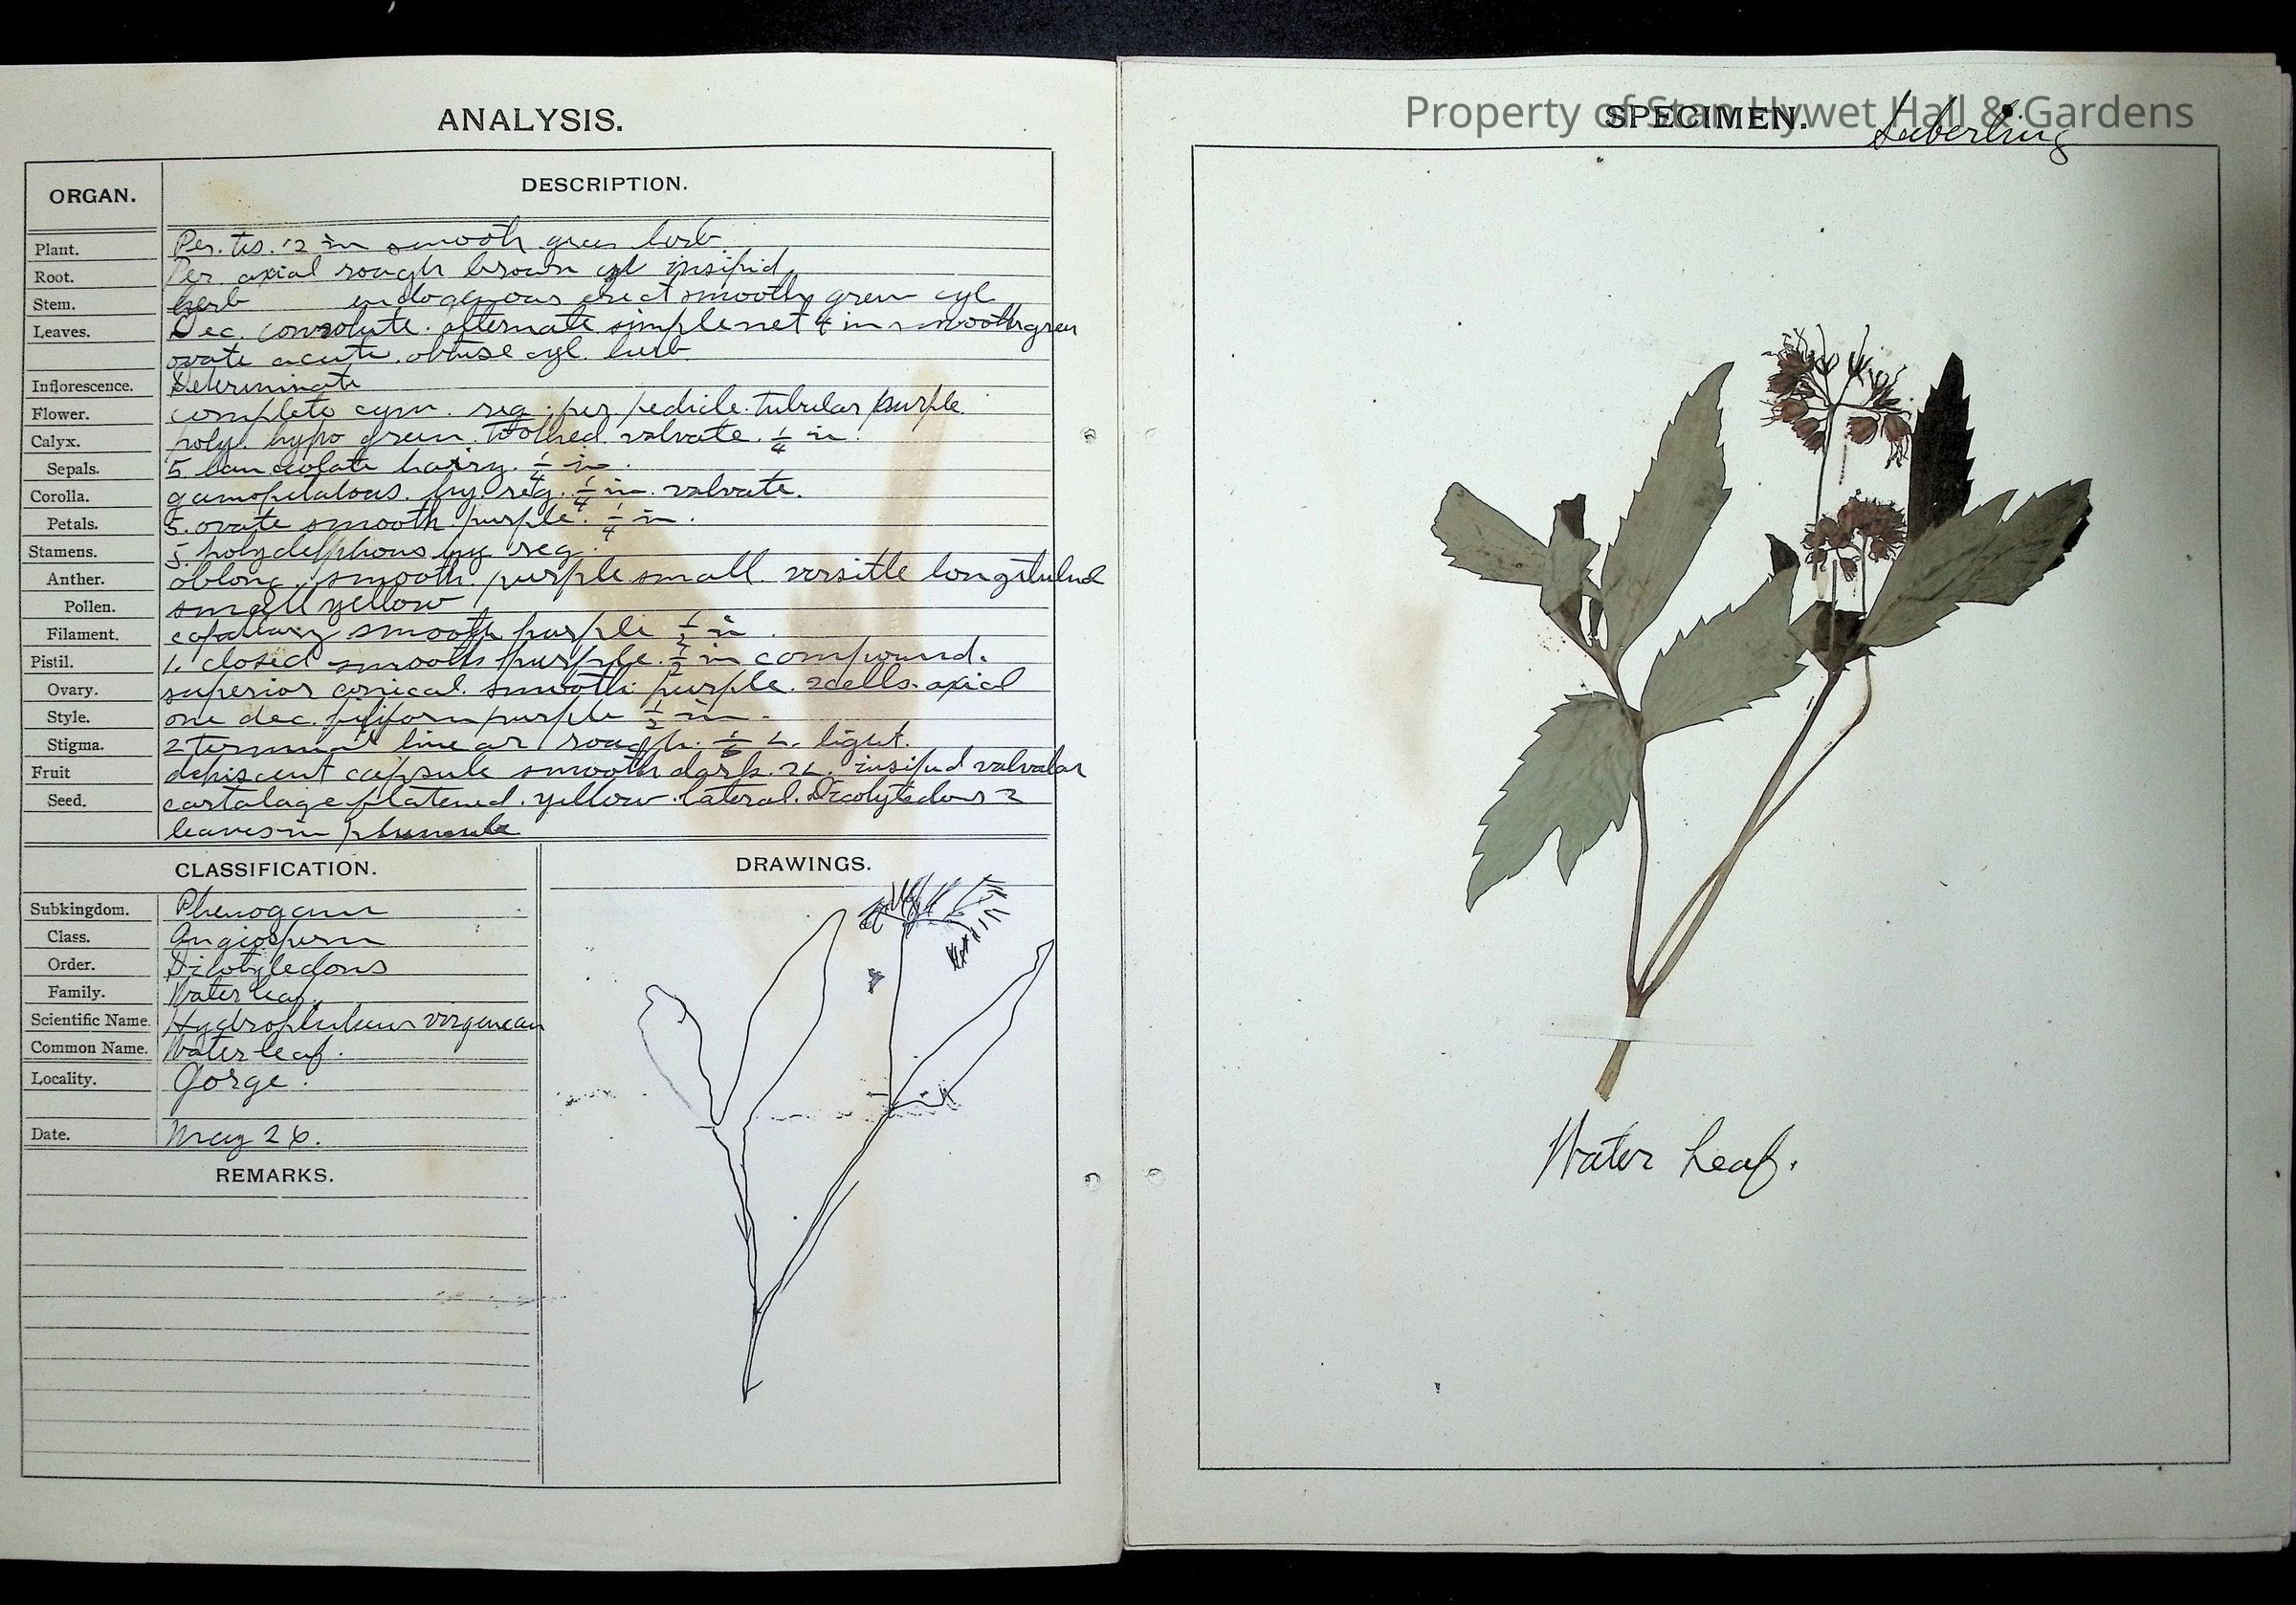 ANALYSIS.
ORGAN. DESCRIPTION.
Plant. Per. tis. 12 in smooth green herb
Root. Per axial rough brown cyl insipid,
Stem. herb endogenous erect smooth green cyl
Leaves. Dec. convolute. alternate simple net 4 in smooth green
ovate acute. obtuse cyl. herb
Inflorescence. Determinate
Flower. complete cym. reg. per. pedicle. tubular purple
Calyx. poly. hypo green. toothed. valvate. 1/4 in.
Sepals. 5 lanceolate hairy. 1/4 in.
Corolla. gamopetalous. hy. reg. 1/4 in. valvate.
Petals. 5. ovate smooth. purple. 1/4 in.
Stamens. 5. polydelphous hy reg.
Anther. oblong. smooth. purple small. versitle
Pollen. small yellow
Filament. capillary smooth purple 1/2 in.
Pistil. 1. closed smooth purple. 1/2 in compound.
Ovary. superior conical. smooth. purple. 2 cells. axial
Style. one dec. filiform purple 1/2 in.
Stigma. 2 terminal linear rough. light.
Fruit dehiscent capsule smooth dark. insipid valvalar
Seed. cartalage flatened. yellow. lateral. Dicolytedous 2
leaves in plumule
CLASSIFICATION.
Subkingdom. Phenogam
Class. Angiosperm
Order. Dicotyledons
Family. Water leaf.
Scientific Name. Hydrophulum virginean
Common Name. Water leaf.
Locality. Gorge.
Date. May 26.
REMARKS.
DRAWINGS.
Property of Stan Hywet Hall & Gardens
SPECIMEN. Seiberling
Water Leaf.